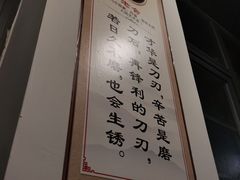 才华是刀刃，辛苦是磨
刀石，再锋利的刀刃，
若日久不磨，也会生锈。